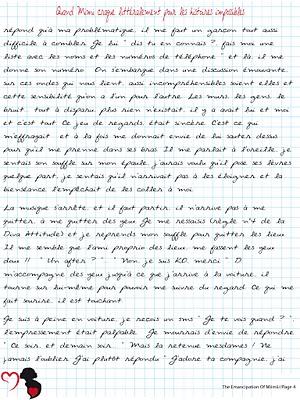 Quand Mimi craque littéralement pour les histoires impossibles
répond qu'à ma problématique, il me fait un garçon tout aussi
difficile à combler. Je lui " dis tu en connais ", fais moi une
liste avec les noms et les numéros de téléphone " et là, il me
donne son numéro. On s'embarque dans une discussion émouvante,
sur ces ondes qui nous lient aussi incompréhensibles soient elles et
cette sensibilité qu'on a l'un pour l'autre. Les murs, les gens, le
bruit, tout a disparu, plus rien n'existait, il y a avait lui et moi
et c'est tout. Ce jeu de regards était sincère. C'est ce qui
m'effrayait et à la fois me donnait envie de lui sauter dessus
pour qu'il me prenne dans ses bras. Il me parlait à l'oreille, je
sentais son souffle sur mon épaule, j'aurais voulu qu'il pose ses lèvres
quelque part, je sentais qu'il n'arrivait pas à les éloigner et la
bienséance l'empêchait de les coller à moi.
La musique s'arrête, et il faut partir, il n'arrive pas à me
quitter, à me quitter des yeux. Je me ressaisis (règle n°4 de la
Diva Attitude) et je reprends mon souffle pour quitter les lieux.
Il me semble que l'ami proprio des lieux, me fassent les yeux
doux !! " Un after ? ", " Non, je suis KO, merci ". D
m'accompagne des yeux jusqu'à ce que j'arrive à la voiture, il
tourne sur lui-même pour pouvoir me suivre du regard. Ce qui me
fait sourire, il est touchant.
Je suis à peine en voiture, je reçois un sms " Je te vois quand ? ",
l'empressement était palpable. Je mourrais d'envie de répondre
" Ce soir, et demain soir... ". Mais la retenue mesdames ! Ne
jamais l'oublier. J'ai plutôt répondu " J'adore ta compagnie, j'ai
The Emancipation Of Mimi//Page 4